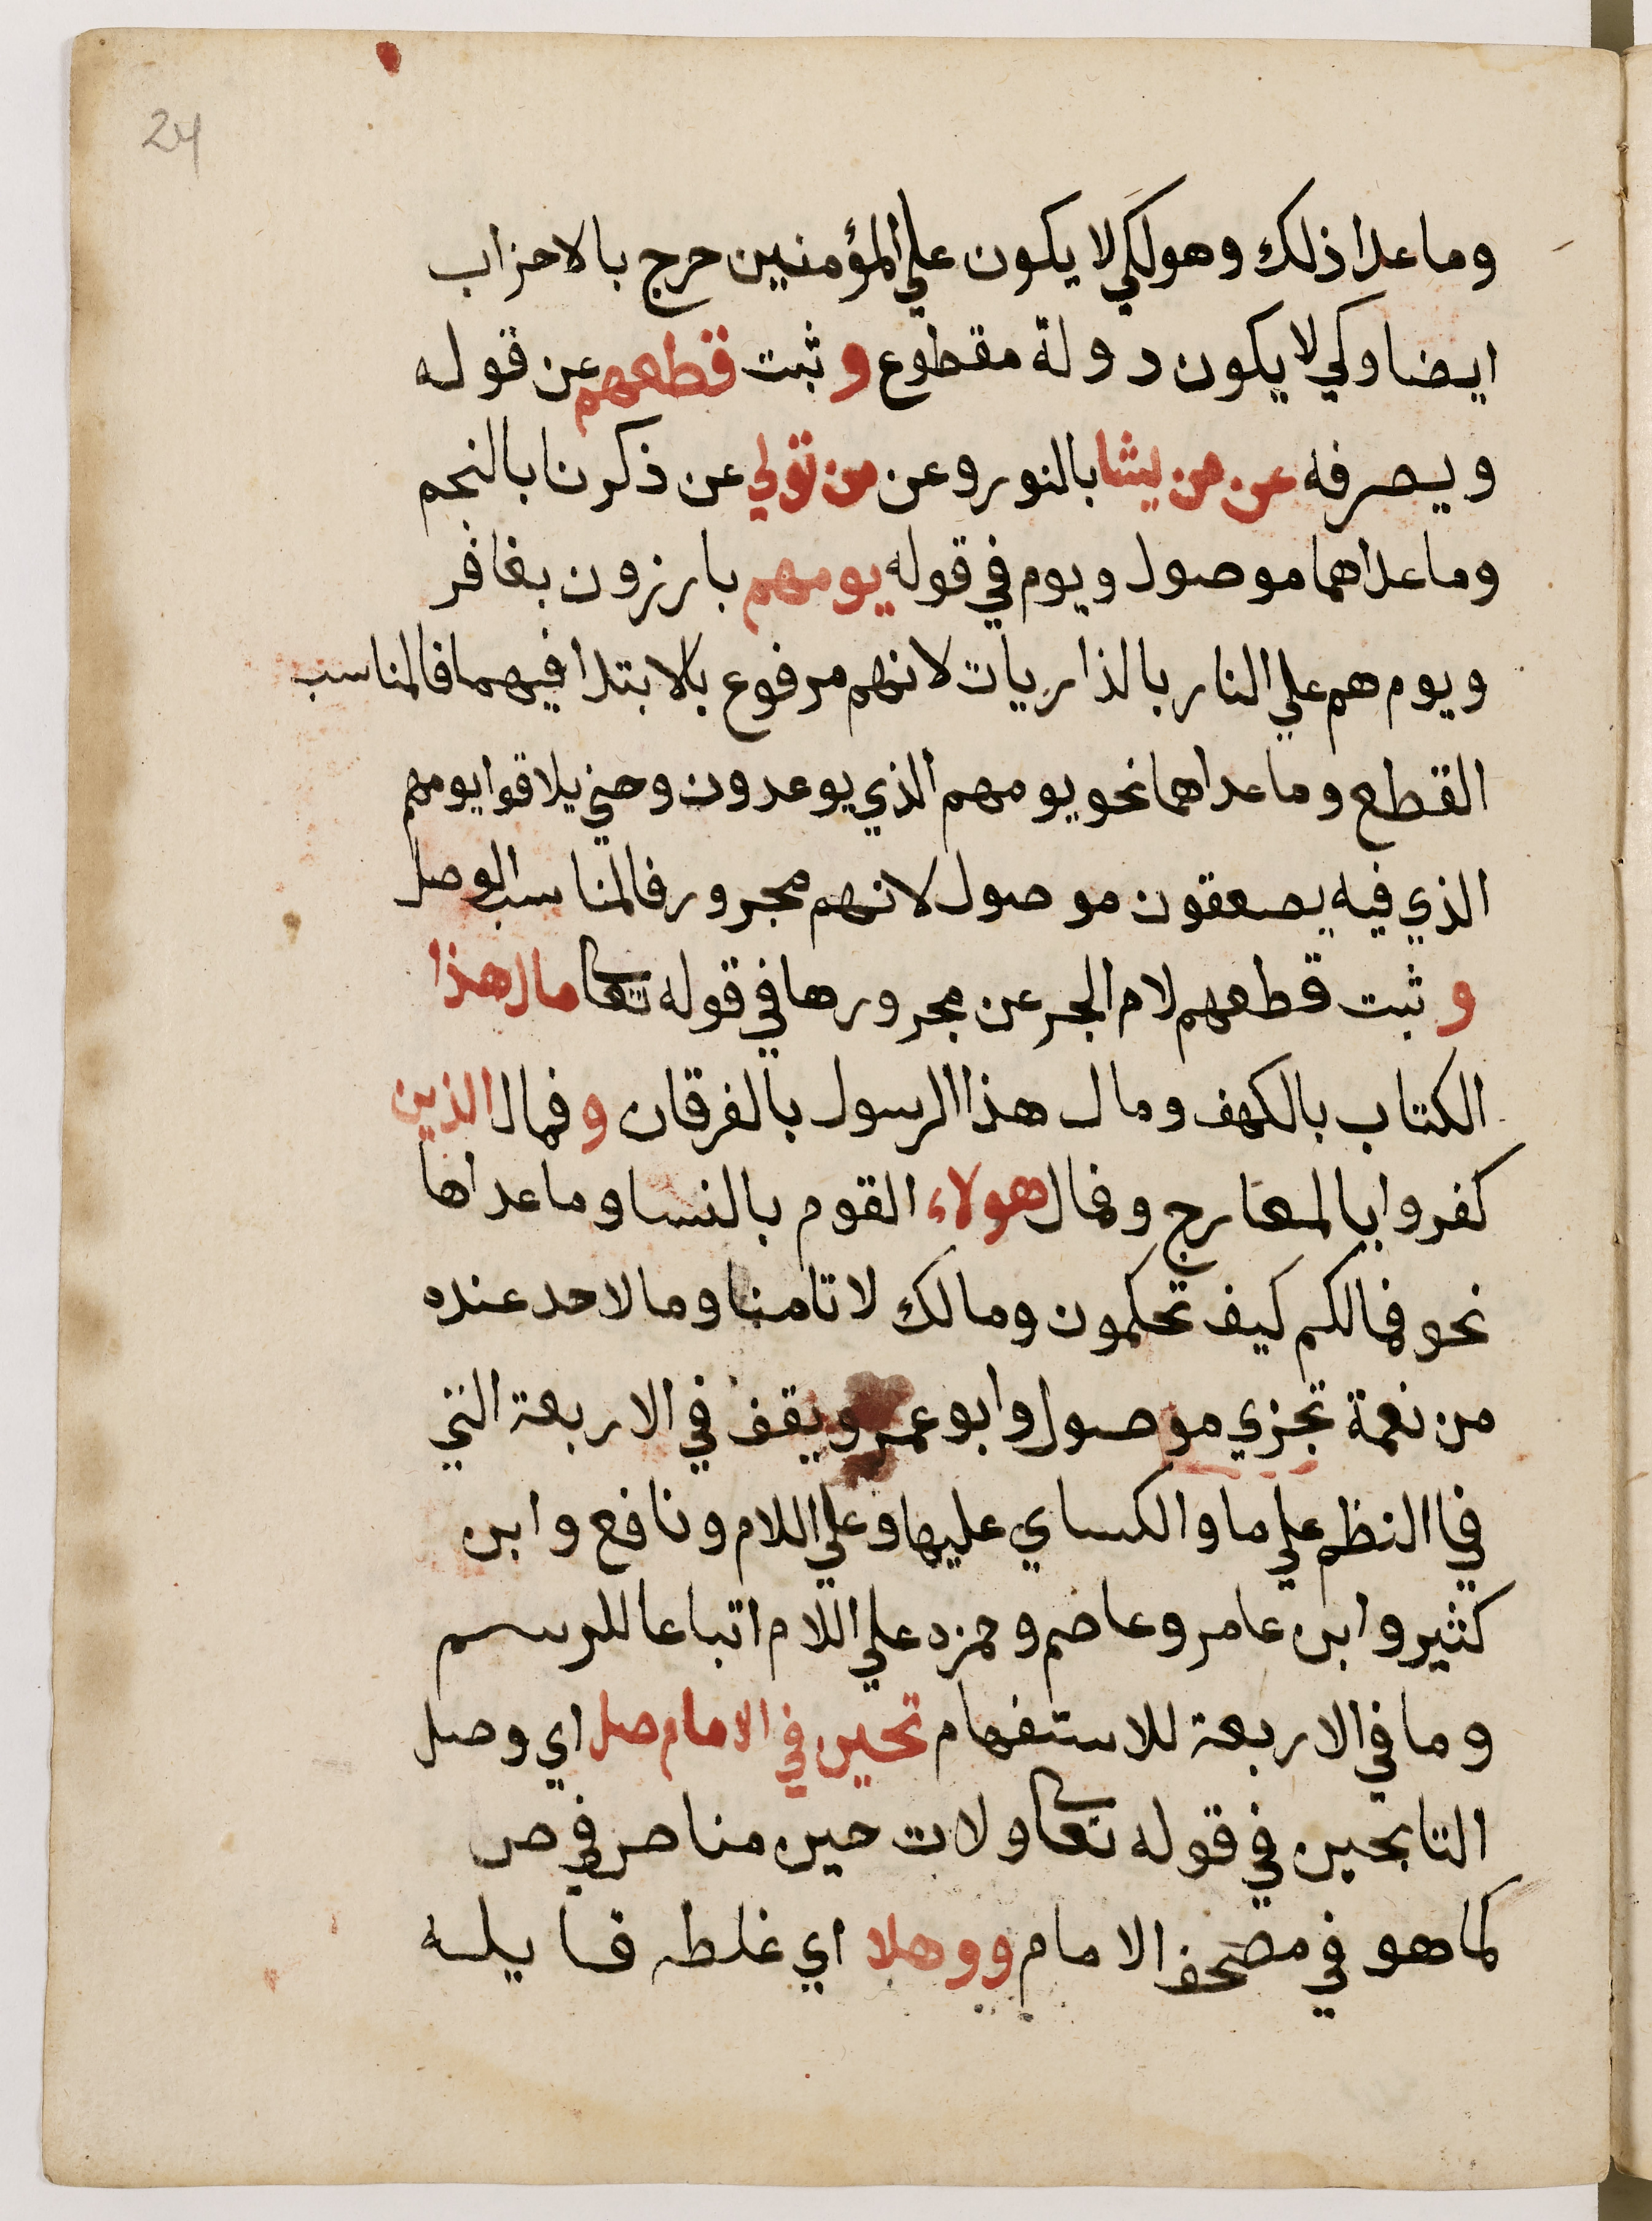 24
وما عدا ذلك وهو لكي لا يكون علي المؤمنين حرج بالاحزاب
ايضا وكي لا يكون دولة مقطوع وثبت قطعهم عن قوله
ويصرفه عن من يشا بالنور وعن من تولي عن ذكرنا بالنجم
وما عداهما موصول ويوم في قوله يومهم بارزون بغافر
ويوم هم علي النار بالذاريات لانهم مرفوع بالابتدا فيهما فالمناسب
القطع وما عداهما نحو يومهم الذي يوعدون وحتي يلاقوا يومهم
الذي فيه يصعقون موصول لانهم مجرور فالمناسب الوصل
وثبت قطعهم لام الجر عن مجرورها في قوله تعا مال هذا
الكتاب بالكهف ومال هذا الرسول بالفرقان وفمال الذين
كفروا بالمعارج وفمال هولاء القوم بالنسا وما عداها
نحو فمالكم كيف تحكمون ومالك لا تامنا وما لاحد عنده
من نعمة تجزي موصول وابو عمرو يقف في الاربعة التي
في النظم علي ما والكساي عليها وعلي اللام ونافع وابن
كثير وابن عامر وعاصم وحمزه علي اللام اتباعا للرسم
وما في الاربعة للاستفهام تحين في الامام صل اي وصل
التا بحين في قوله تعا ولات حين مناص في ص
كما هو في مصحف الامام ووهلا اي غلط قايله